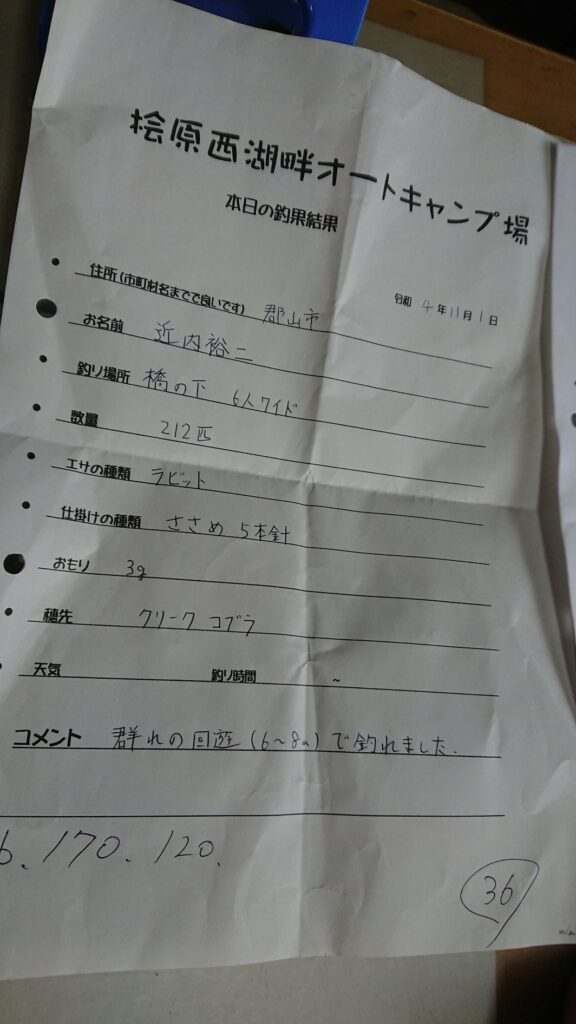 桧原西湖畔オートキャンプ場
本日の釣果結果
令和 4年11月1日
住所(市町村名までで良いです) 郡山市
お名前 近内裕二
釣り場所 橋の下 6人ワイド
数量 212匹
エサの種類 ラビット
仕掛けの種類 ささめ 5本針
おもり 3g
穂先 クリーク コブラ
天気 釣り時間 ~
コメント 群れの回遊(6~8m)で釣れました.
6. 170. 120.
36